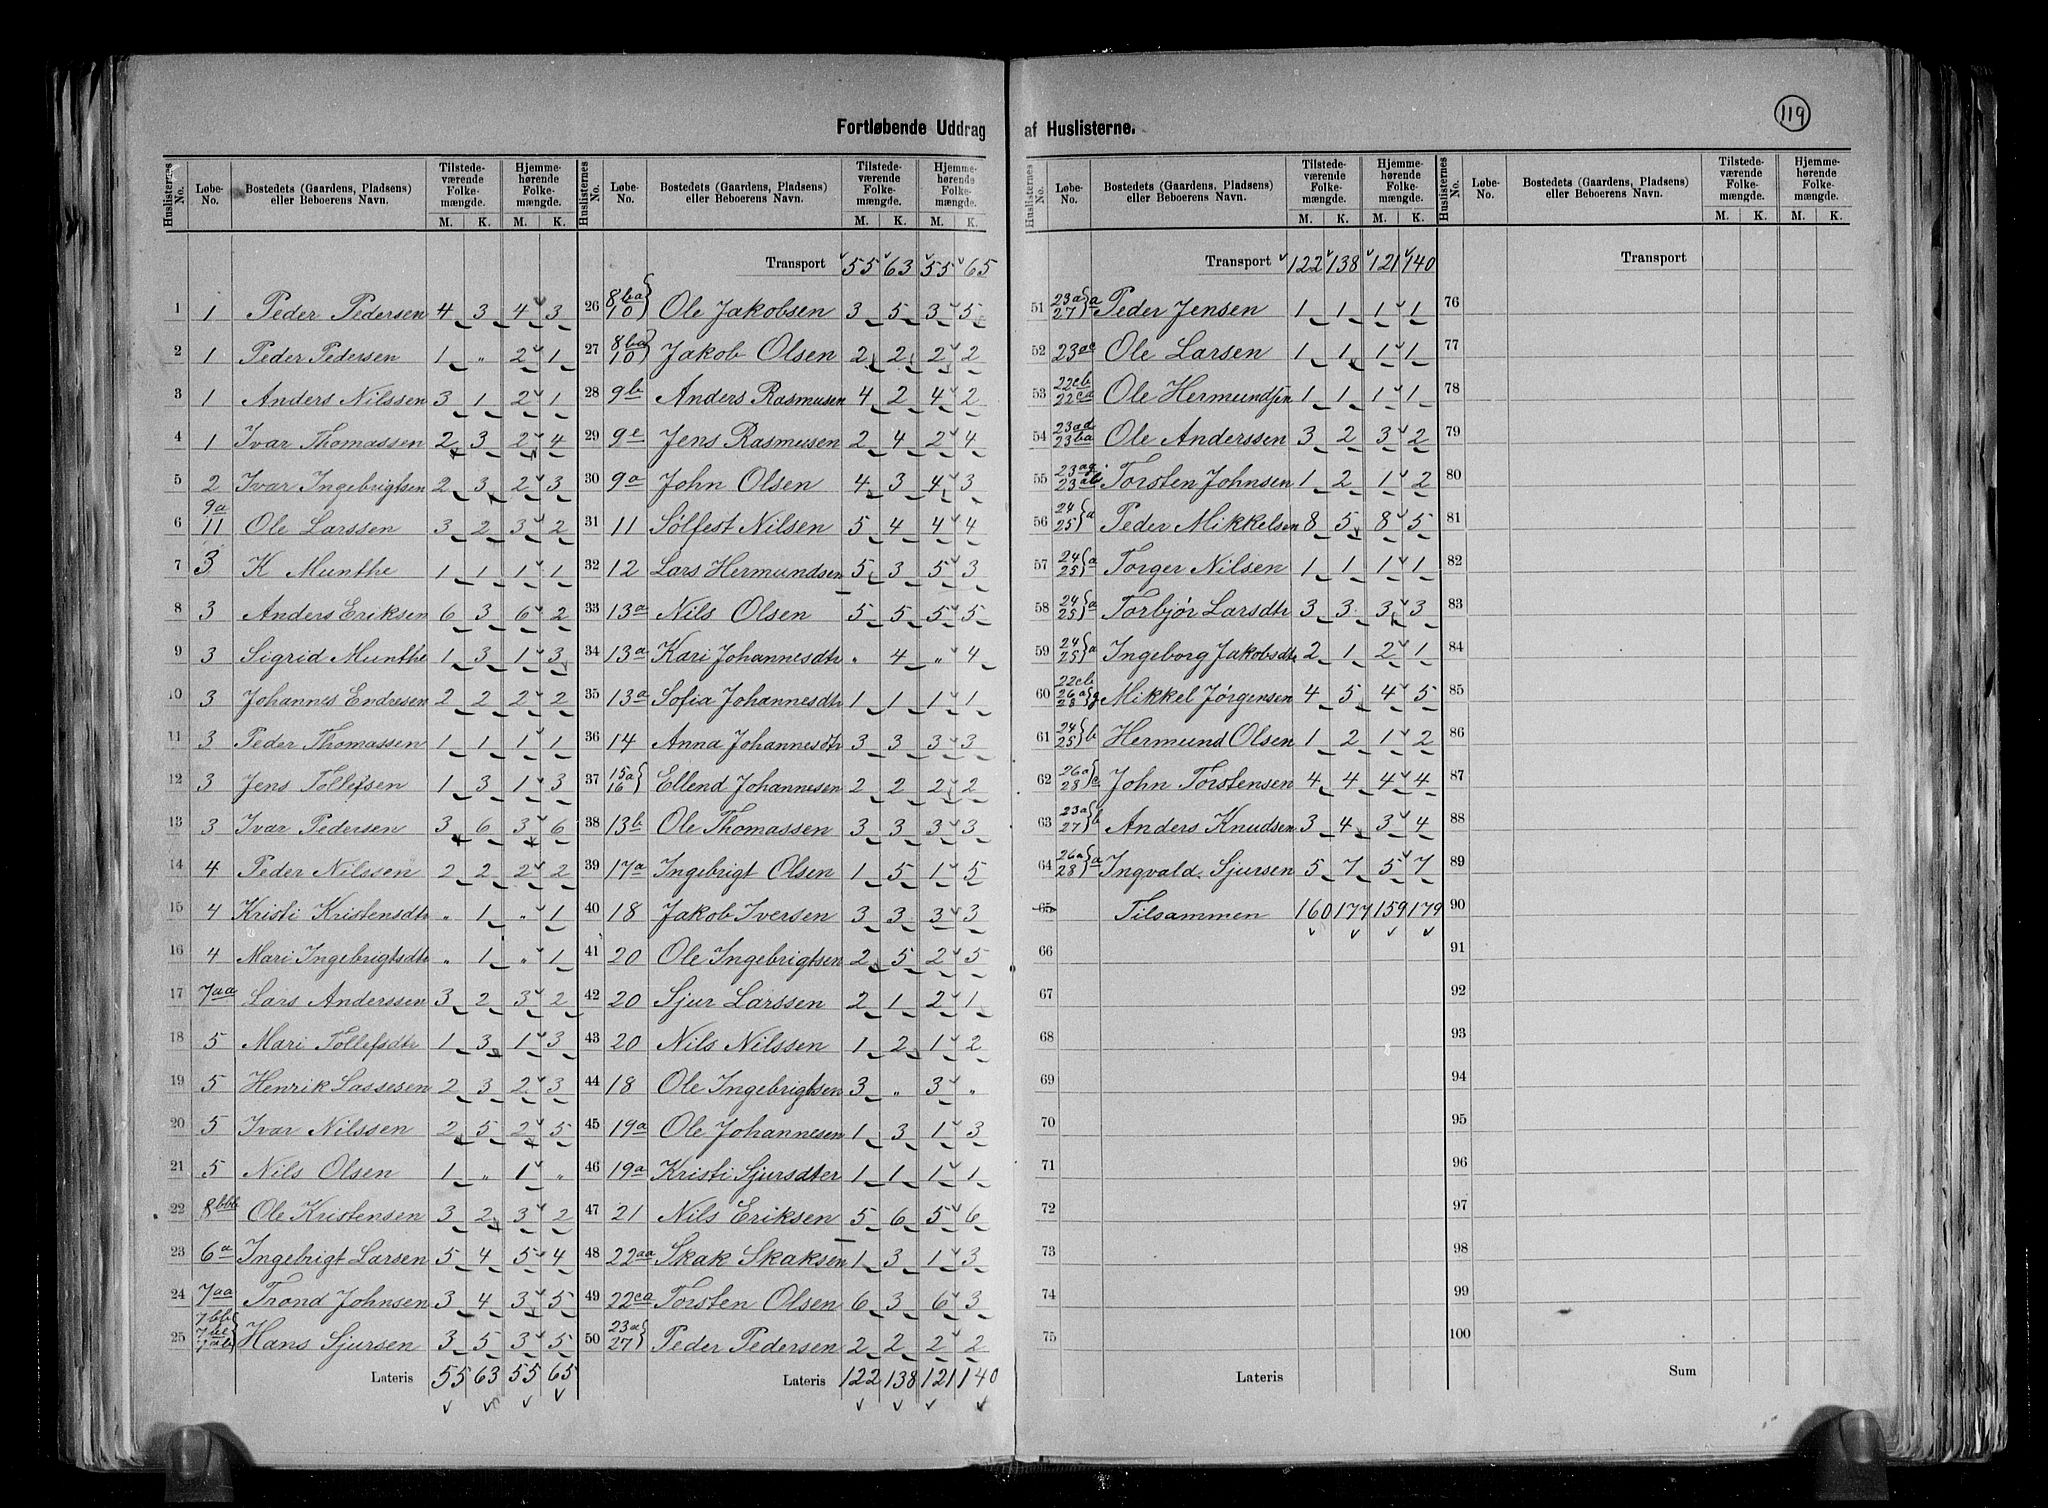 119
Fortløbende Uddrag af Huslisterne.
Huslisternes No. Løbe-No. Bostedets (Gaardens, Pladsens) eller Beboerens Navn. Tilstede-værende Folke-mængde. M. K. Hjemme-hørende Folke-mængde. M. K.
1 1 Peder Pedersen 4 3 4 3
2 1 Peder Pedersen 1 " 2 1
3 1 Anders Nilssen 3 1 2 1
4 1 Ivar Thomassen 2 3 2 4
5 2 Ivar Ingebrigtsen 2 3 2 3
6 9a 11 Ole Larssen 3 2 3 2
7 3 K Munthe 1 1 1 1
8 3 Anders Eriksen 6 3 6 2
9 3 Sigrid Munthe 1 3 1 3
10 3 Johannes Endresen 2 2 2 2
11 3 Peder Thomassen 1 1 1 1
12 3 Jens Tollefsen 1 3 1 3
13 3 Ivar Pedersen 3 6 3 6
14 4 Peder Nilssen 2 2 2 2
15 4 Kristi Kristensdtr " 1 " 1
16 4 Mari Ingebrigtsdtr " 1 " 1
17 7aa Lars Anderssen 3 2 3 2
18 5 Mari Tollefsdtr 1 3 1 3
19 5 Henrik Lassesen 2 3 2 3
20 5 Ivar Nilssen 2 5 2 5
21 5 Nils Olsen 1 " 1 "
22 8bbb Ole Kristensen 3 2 3 2
23 6a Ingebrigt Larsen 5 4 5 4
24 7aa Trond Johnsen 3 4 3 5
25 7bb Hans Sjursen 3 5 3 5
Lateris 55 63 55 65
Huslisternes No. Løbe-No. Bostedets (Gaardens, Pladsens) eller Beboerens Navn. Tilstede-værende Folke-mængde. M. K. Hjemme-hørende Folke-mængde. M. K.
Transport 55 63 55 65
26 8ba 10 } Ole Jakobsen 3 5 3 5
27 8ba 10 } Jakob Olsen 2 2 2 2
28 9b Anders Rasmusen 4 2 4 2
29 9c Jens Rasmusen 2 4 2 4
30 9a John Olsen 4 3 4 3
31 11 Sølfest Nilsen 5 4 4 4
32 12 Lars Hermundsen 5 3 5 3
33 13a Nils Olsen 5 5 5 5
34 13a Kari Johannesdtr " 4 " 4
35 13a Sofia Johannesdtr 1 1 1 1
36 14 Anna Johannesdtr 3 3 3 3
37 15a 16 } Ellend Johannesen 2 2 2 2
38 13b Ole Thomassen 3 3 3 3
39 17a Ingebrigt Olsen 1 5 1 5
40 18 Jakob Iversen 3 3 3 3
41 20 Ole Ingebrigtsen 2 5 2 5
42 20 Sjur Larssen 2 1 2 1
43 20 Nils Nilssen 1 2 1 2
44 18 Ole Ingebrigtsen 3 " 3 "
45 19a Ole Johannesen 1 3 1 3
46 19a Kristi Sjursdter 1 1 1 1
47 21 Nils Eriksen 5 6 5 6
48 22aa Skak Skaksen 1 3 1 3
49 22ca Torsten Olsen 6 3 6 3
50 23a 27 } Peder Pedersen 2 2 2 2
Lateris 122 138 121 140
Huslisternes No. Løbe-No. Bostedets (Gaardens, Pladsens) eller Beboerens Navn. Tilstede-værende Folke-mængde. M. K. Hjemme-hørende Folke-mængde. M. K.
Transport 122 138 121 140
51 23a 27 } a Peder Jensen 1 1 1 1
52 23ac Ole Larsen 1 1 1 1
53 22cb 22ca Ole Hermundsen 1 1 1 1
54 23ad 23ba Ole Anderssen 3 2 3 2
55 23ag Torsten Johnsen 1 2 1 2
56 24 25 } a Peder Mikkelsen 8 5 8 5
57 24 25 } a Torger Nilsen 1 1 1 1
58 24 25 } a Torbjør Larsdtr 3 3 3 3
59 24 25 } a Ingeborg Jakobsdtr 2 1 2 1
60 22cb 26a 28 } g Mikkel Jørgensen 4 5 4 5
61 24 25 } b Hermund Olsen 1 2 1 2
62 26a 28 } c John Torstensen 4 4 4 4
63 23a 27 } b Anders Knudsen 3 4 3 4
64 26a 28 } a Ingvald Sjursen 5 7 5 7
65 Tilsammen 160 177 159 179
66
67
68
69
70
71
72
73
74
75
Lateris
Huslisternes No. Løbe-No. Bostedets (Gaardens, Pladsens) eller Beboerens Navn. Tilstede-værende Folke-mængde. M. K. Hjemme-hørende Folke-mængde. M. K.
Transport
76
77
78
79
80
81
82
83
84
85
86
87
88
89
90
91
92
93
94
95
96
97
98
99
100
Sum